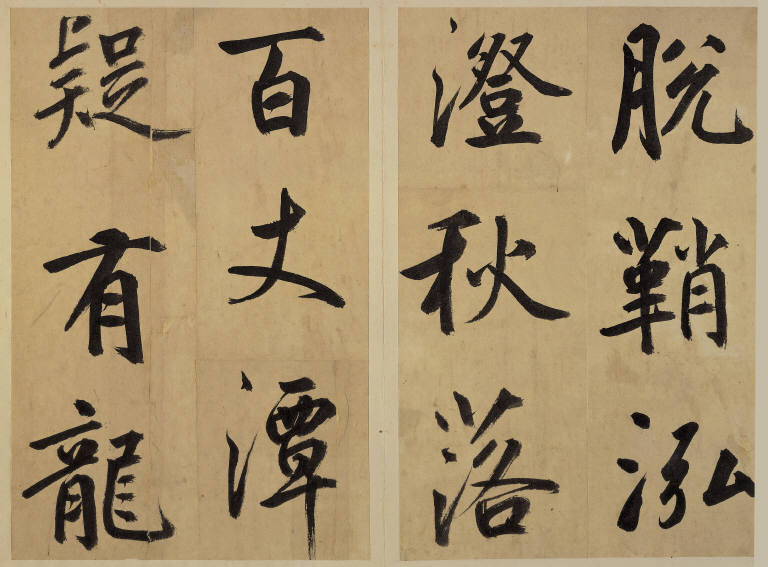 脱鞘泓
澄秋落
百丈潭
疑有龍